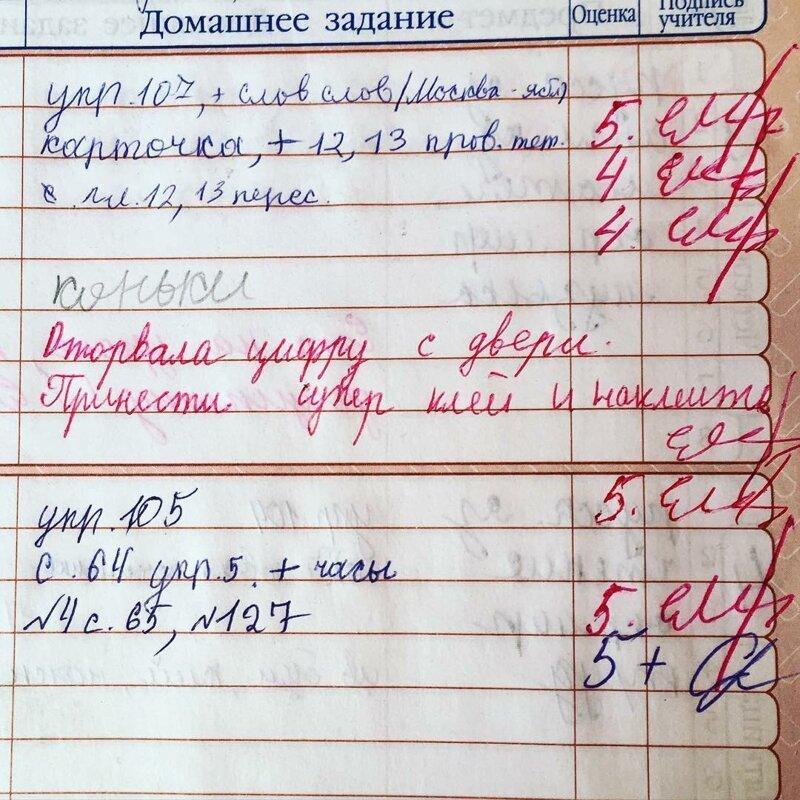 Домашнее задание Оценка Подпись учителя
упр.107, + слов слов (Москва - ябл)
5.
карточка, + 12, 13 пров. тет.
4
с. 12, 13 перес.
4
коньки
Оторвала цифру с двери.
Принести супер клей и наклеить
упр.105
5.
с. 64 упр.5. + часы
№4 с. 65, №127
5.
5+